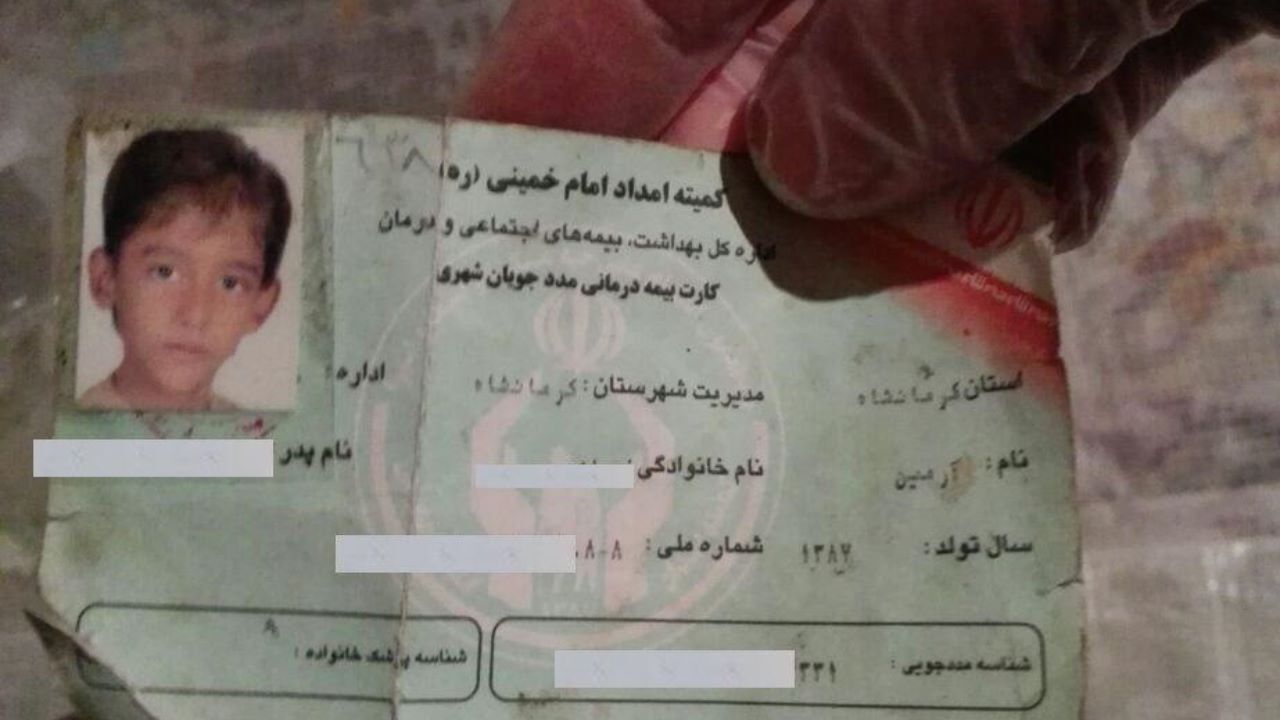 ۶۳۸
کمیته امداد امام خمینی (ره)
اداره کل بهداشت، بیمه‌های اجتماعی و درمان
کارت بیمه درمانی مدد جویان شهری
استان کرمانشاه مدیریت شهرستان: کرمانشاه اداره:
نام: آرمین نام خانوادگی نام پدر
سال تولد: ۱۳۸۷ شماره ملی:
شناسه مددجویی: ۳۳۱ شناسه پزشک خانواده: